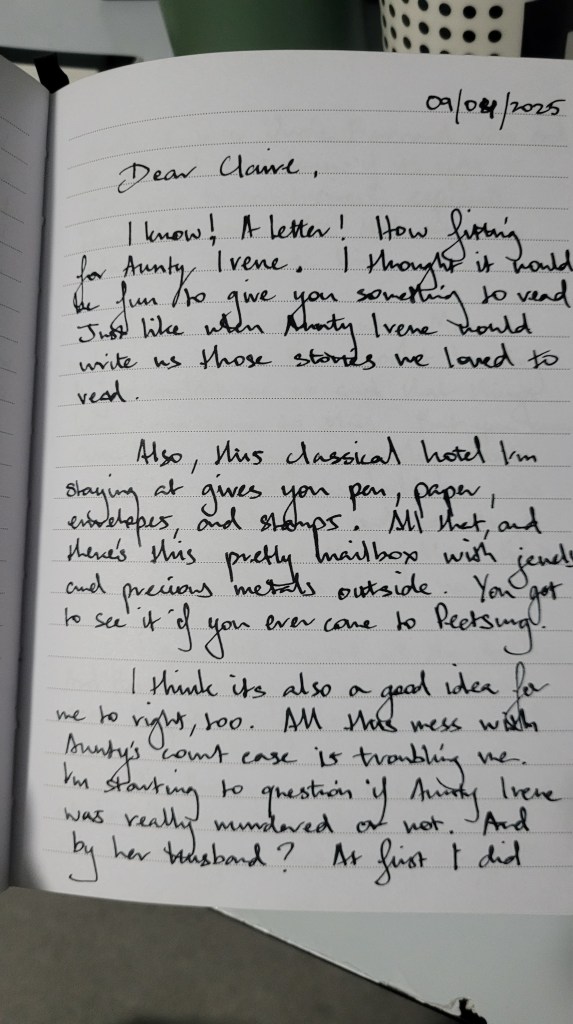 09/04/2025
Dear Claire,
I know! A letter! How fitting
for Aunty Irene. I thought it would
be fun to give you something to read
Just like when Aunty Irene would
write us those stories we loved to
read.
Also, this classical hotel I'm
staying at gives you pen, paper,
envelopes, and stamps. All that, and
there's this pretty mailbox with jewels
and precious metals outside. You got
to see it if you ever come to Peetsung.
I think its also a good idea for
me to right, too. All this mess with
Aunty's court case is troubling me.
I'm starting to question if Aunty Irene
was really murdered or not. And
by her husband? At first I did